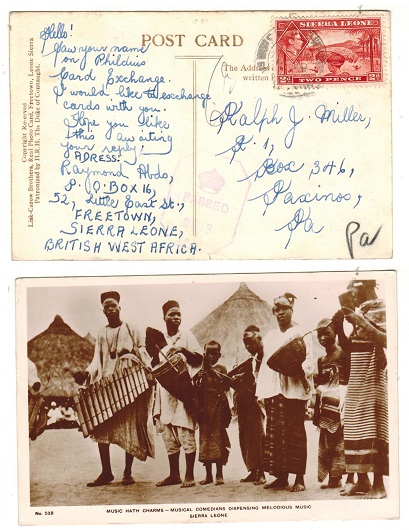 Hello!
I saw your name
on / Phildius
Card Exchange.
I would like to exchange
cards with you.
Hope you like
this awaiting
your reply!
ADRESS:
Raymond Abdo,
P.O. BOX 16,
52, Little East St.,
FREETOWN,
SIERRA LEONE,
BRITISH WEST AFRICA.
POST CARD
The Address
written
SIERRA LEONE
2d 2d
TWO PENCE
Ralph J. Miller,
R. 1,
Box 346,
Paxinos,
Pa
Pa
PASSED
Copyright Reserved
Lisk-Carew Brothers, Real Photo Card, Freetown, Sierra Leone
Patronized by H.R.H. The Duke of Connaught.
No. 52B
MUSIC HATH CHARMS — MUSICAL COMEDIANS DISPENSING MELODIOUS MUSIC
SIERRA LEONE